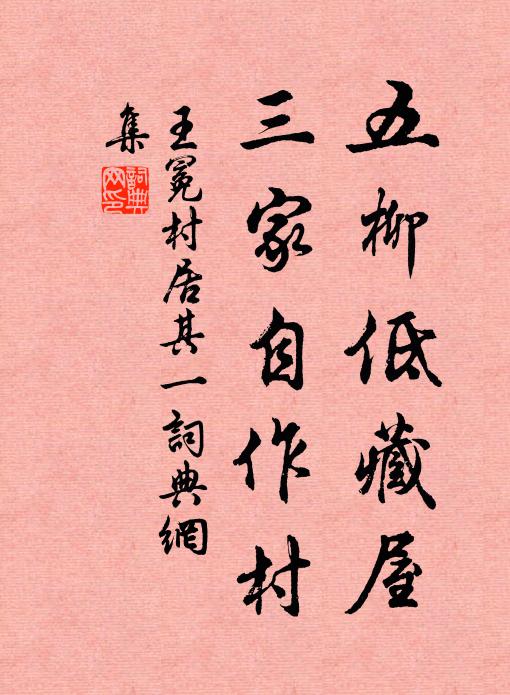 五柳低藏屋
三家自作村
王冕村居其一詞典網
集
詞典
网印